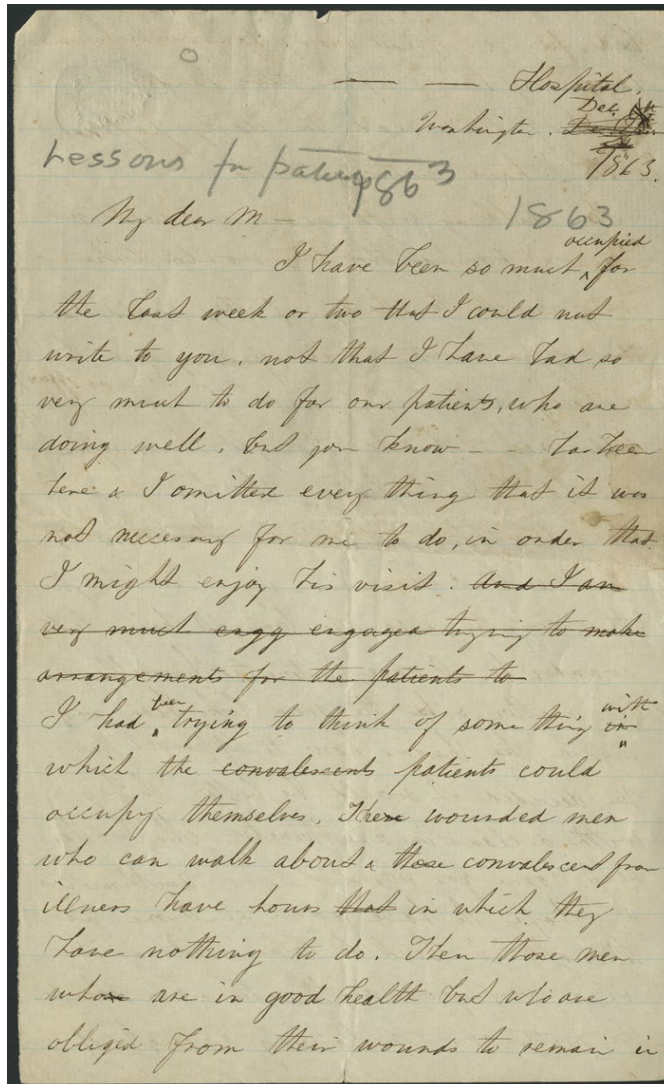 — — Hospital.
Dec.
Washington.
1863.
Lessons for patients 1863
1863
My dear M—
occupied
I have been so much ^ for
the last week or two that I could not
write to you. not that I have had so
very much to do for our patients, who are
doing well. but you know — - has been
here & I omitted every thing that it was
not necessary for me to do, in order that
I might enjoy his visit. And I am
very much engg engaged trying to make
arrangements for the patients to
been with
I had ^ trying to think of some thing in
which the convalescents patients could
occupy themselves. These wounded men
who can walk about & those convalescent from
illness have hours that in which they
have nothing to do. Then those men
whose are in good health but who are
obliged from their wounds to remain in